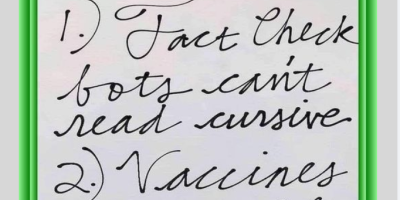 1.) Fact Check
bots can't
read cursive
2.) Vaccines